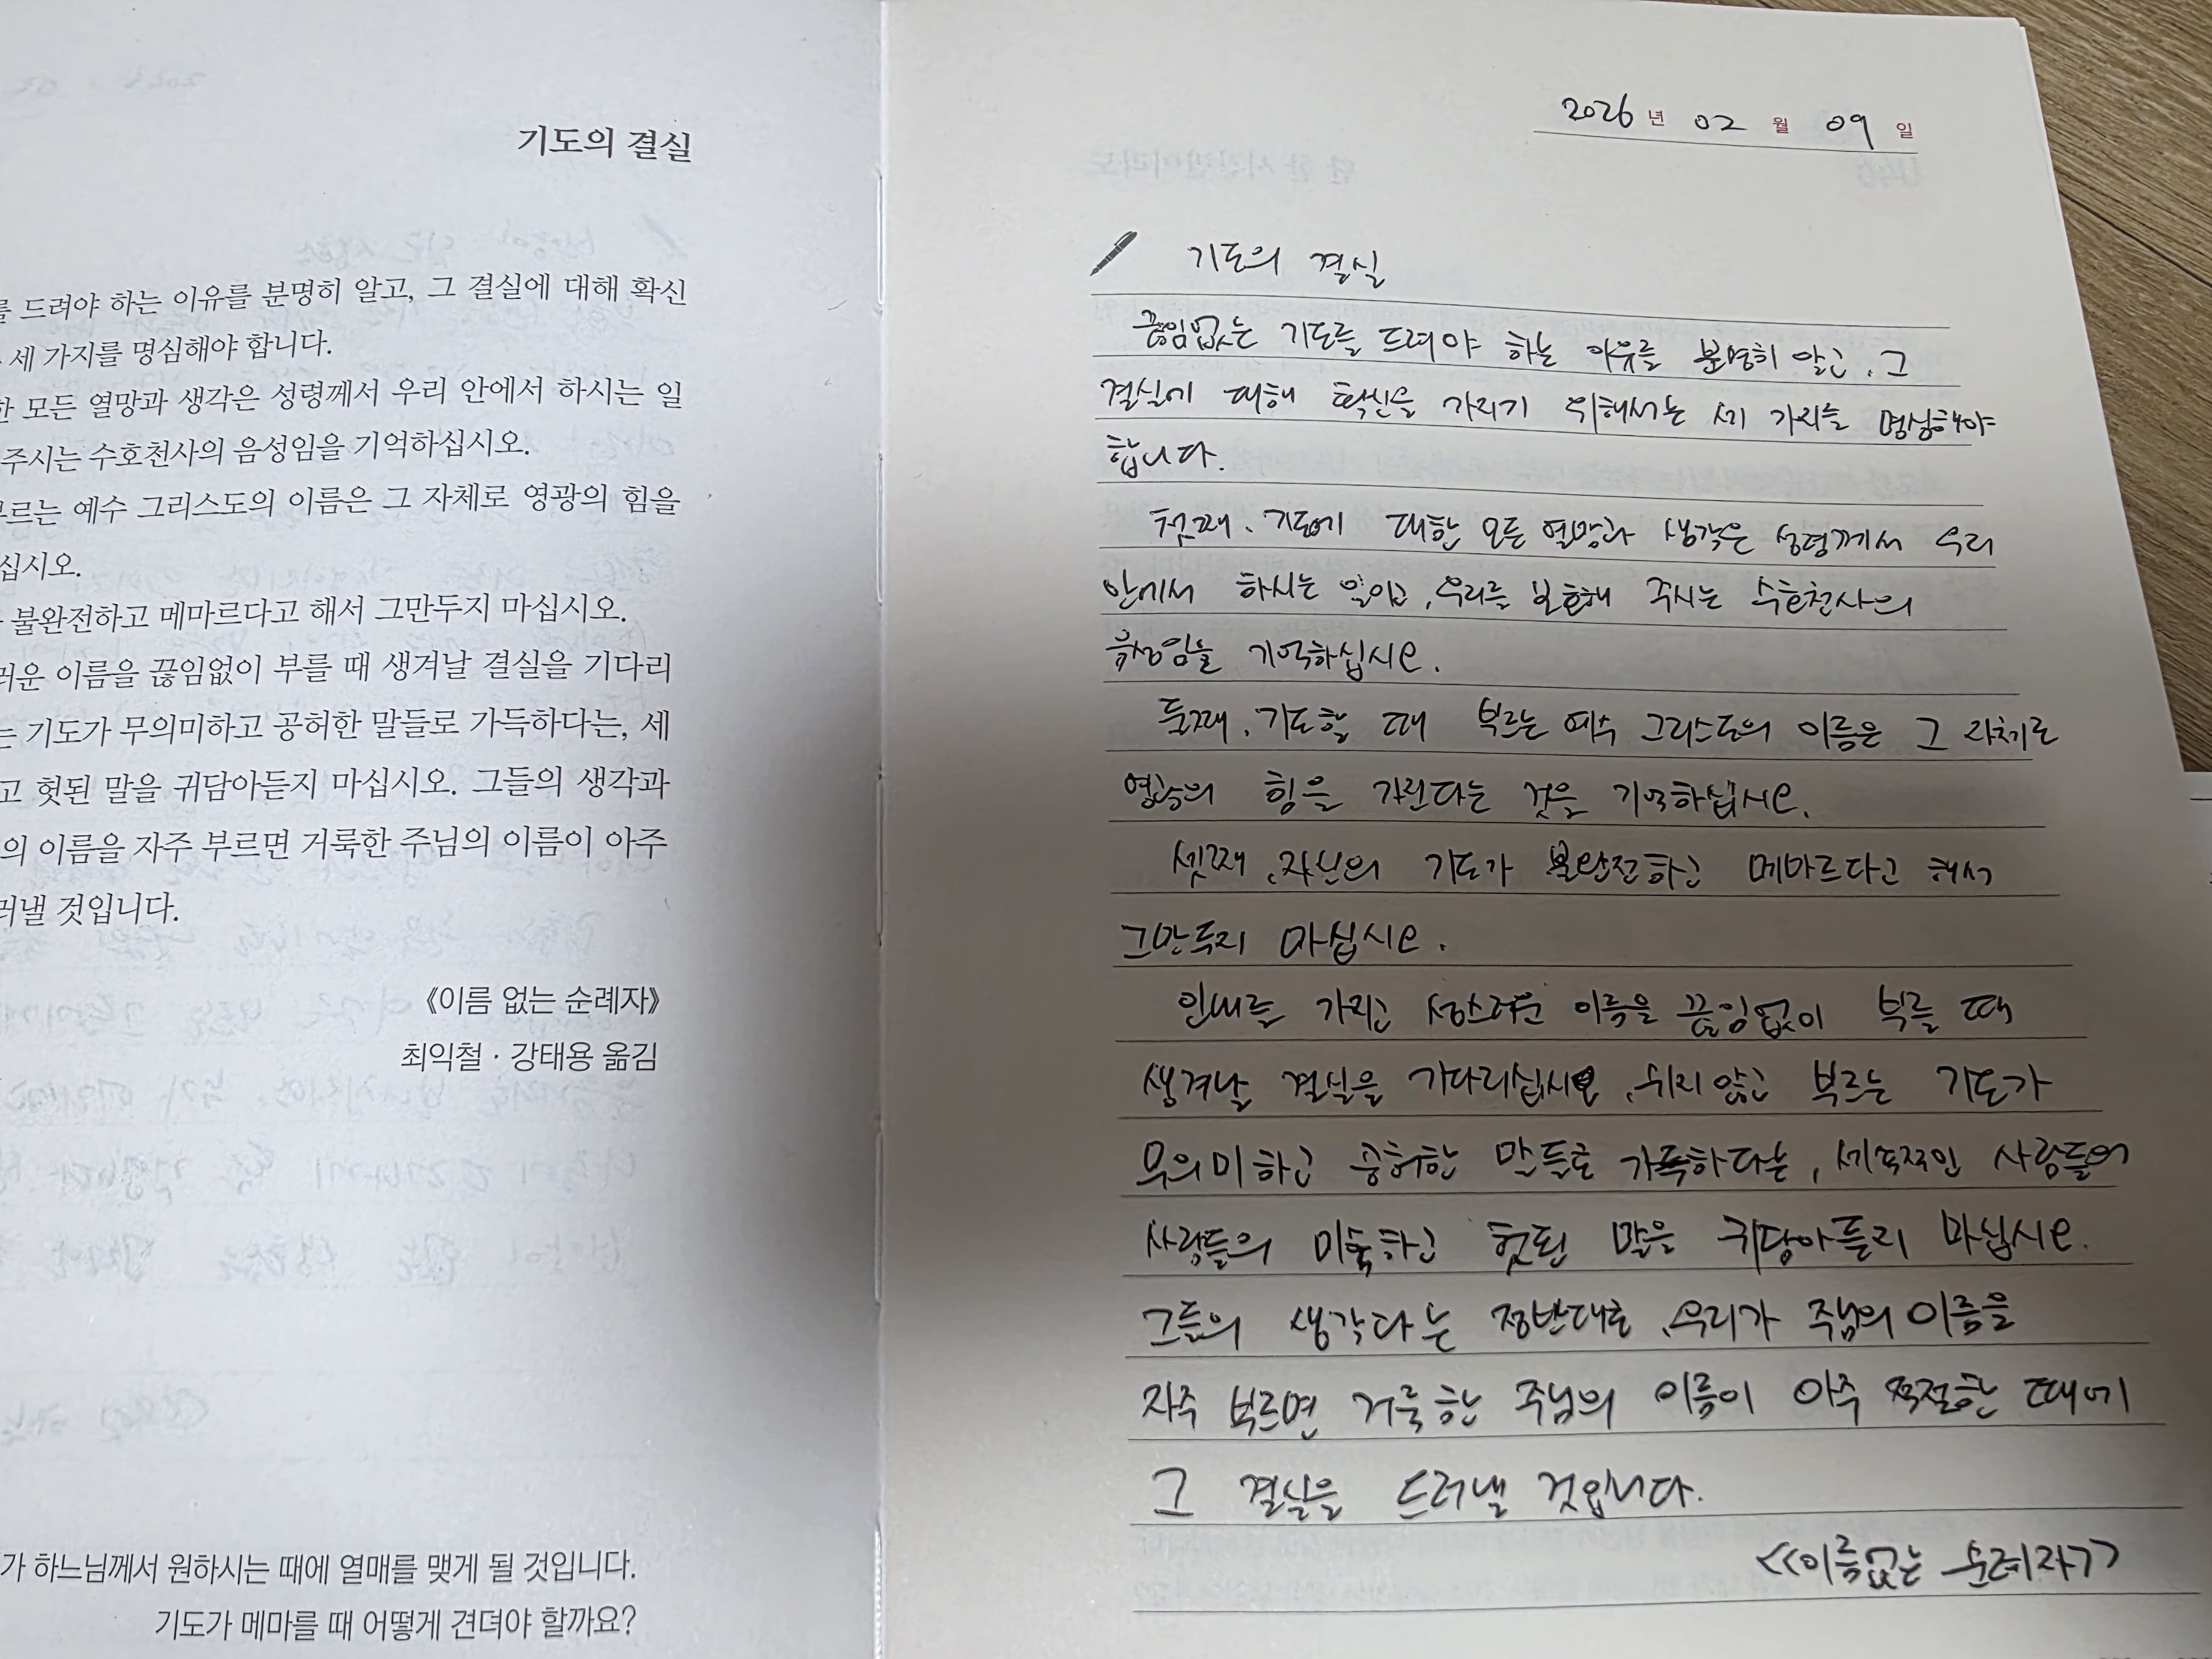 기도의 결실
를 드려야 하는 이유를 분명히 알고, 그 결실에 대해 확신
세 가지를 명심해야 합니다.
한 모든 열망과 생각은 성령께서 우리 안에서 하시는 일
주시는 수호천사의 음성임을 기억하십시오.
부르는 예수 그리스도의 이름은 그 자체로 영광의 힘을
십시오.
불완전하고 메마르다고 해서 그만두지 마십시오.
러운 이름을 끊임없이 부를 때 생겨날 결실을 기다리
는 기도가 무의미하고 공허한 말들로 가득하다는, 세
고 헛된 말을 귀담아듣지 마십시오. 그들의 생각과
의 이름을 자주 부르면 거룩한 주님의 이름이 아주
러낼 것입니다.
《이름 없는 순례자》
최익철 · 강태용 옮김
가 하느님께서 원하시는 때에 열매를 맺게 될 것입니다.
기도가 메마를 때 어떻게 견뎌야 할까요?
2026년 02월 09일
기도의 결실
끊임없는 기도를 드려야 하는 이유를 분명히 알고, 그
결실에 대해 확신을 가지기 위해서는 세 가지를 명심해야
합니다.
첫째, 기도에 대한 모든 열망과 생각은 성령께서 우리
안에서 하시는 일이고, 우리를 보호해 주시는 수호천사의
음성임을 기억하십시오.
둘째, 기도할 때 부르는 예수 그리스도의 이름은 그 자체로
영광의 힘을 가진다는 것을 기억하십시오.
셋째, 자신의 기도가 불완전하고 메마르다고 해서
그만두지 마십시오.
인내를 가지고 성스러운 이름을 끊임없이 부를 때
생겨날 결실을 기다리십시오, 쉬지 않고 부르는 기도가
무의미하고 공허한 말들로 가득하다는, 세속적인 사람들의
사람들의 미숙하고 헛된 말을 귀담아듣지 마십시오.
그들의 생각과는 정반대로, 우리가 주님의 이름을
자주 부르면 거룩한 주님의 이름이 아주 적절한 때에
그 결실을 드러낼 것입니다.
<<이름없는 순례자>>